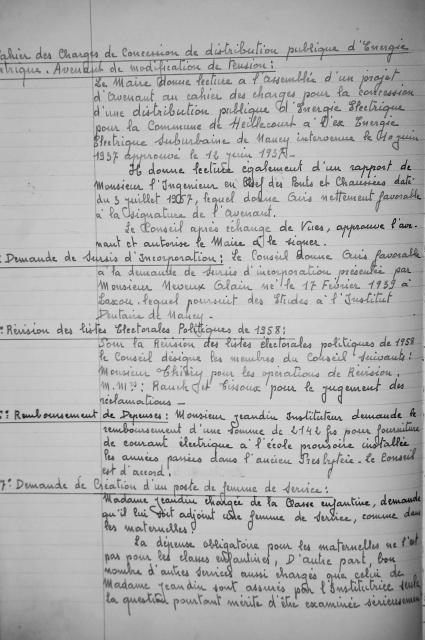 Cahier des Charges de Concession de distribution publique d'Energie
Electrique. Avenant de modification de Pension:
Le Maire donne lecture à l'Assemblée d'un projet
d'Avenant au cahier des charges pour la concession
d'une distribution publique d'Energie Electrique
pour la Commune de Heillecourt à l'Ex Energie
Electrique Suburbaine de Nancy intervenue le 10 juin
1937 approuvé le 12 juin 1937 -
Il donne lecture également d'un rapport de
Monsieur l'Ingenieur en Chef des Ponts et Chaussées daté
du 3 juillet 1957, lequel donne Avis nettement favorable
à la signature de l'Avenant.
Le Conseil après échange de Vues, approuve l'ave-
nant et autorise le Maire à le signer.
Demande de Sursis d'Incorporation: le Conseil donne Avis favorable
à la demande de Sursis d'incorporation présentée par
Monsieur Nevoux Alain né le 17 Février 1939 à
Laxou. lequel poursuit des Etudes à l'Institut
Dentaire de Nancy -
Révision des listes Electorales Politiques de 1958:
Pour la Révision des listes électorales politiques de 1958
le Conseil désigne les membres du Conseil suivants:
Monsieur Thiéry pour les opérations de Révision,
M.M. Rauch et Tissoux pour le jugement des
réclamations -
Remboursement de Depenses: Monsieur Jeandin Instituteur demande le
remboursement d'une somme de 2142 frs pour fourniture
de courant électrique à l'école provisoire installée
les années passées dans l'ancien Presbytère. le Conseil
est d'accord.
7° Demande de Création d'un poste de femme de Service:
Madame Jeandin chargée de la Classe enfantine, demande
qu'il lui soit adjoint une femme de Service, comme dans
les maternelles.
La dépense obligatoire pour les maternelles ne l'est
pas pour les classes enfantines, D'autre part, bon
nombre d'autres services aussi chargés que celui de
Madame Jeandin sont assurés par l'Institutrice seule
la question pourtant mérite d'être examinée sérieusement